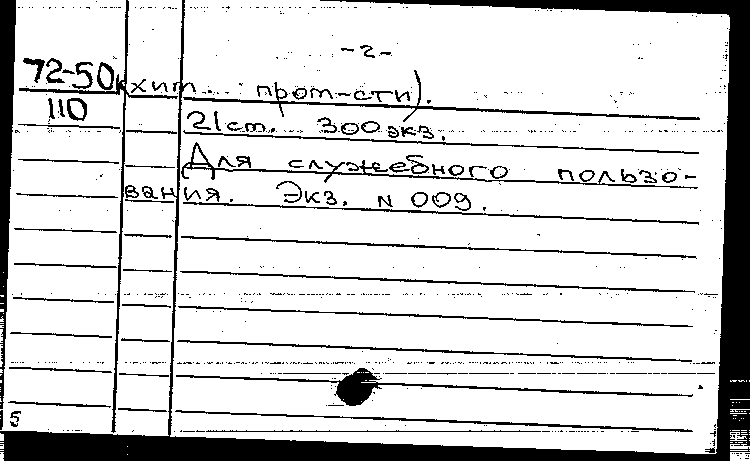 -2-
72-50к
110
хим. пром-сти).
21 см. 300 экз.
Для служебного пользо-
вания. Экз. N 009.
5